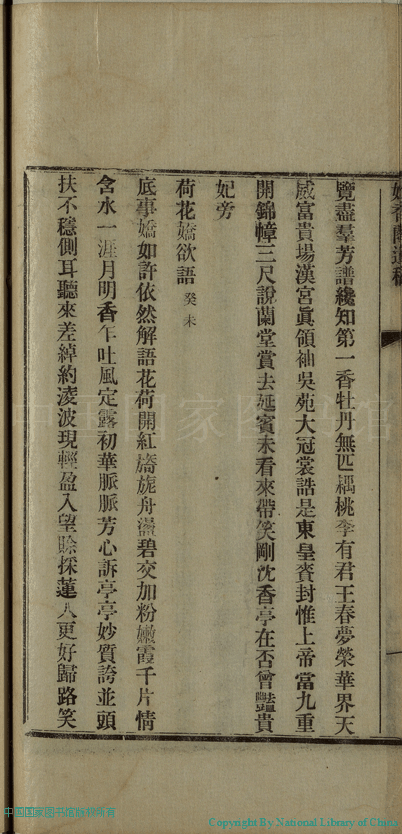 覽盡羣芳譜纔知第一香牡丹無匹耦桃李有君王春夢榮華界天
戚富貴場漢宮眞領袖吳苑大冠裳誥是東皇賚封惟上帝當九重
開錦幛三尺說蘭堂賞去延賓未看來帶笑剛沈香亭在否曾豔貴
妃旁
荷花嬌欲語癸未
底事嬌如許依然解語花荷開紅旖旎舟盪碧交加粉嫩霞千片情
含水一涯月明香乍吐風定露初華脈脈芳心訴亭亭妙質誇並頭
扶不穩側耳聽來差綽約淩波現輕盈入望賒採蓮人更好歸路笑
中国国家图书馆版权所有
Copyright By National Library of China